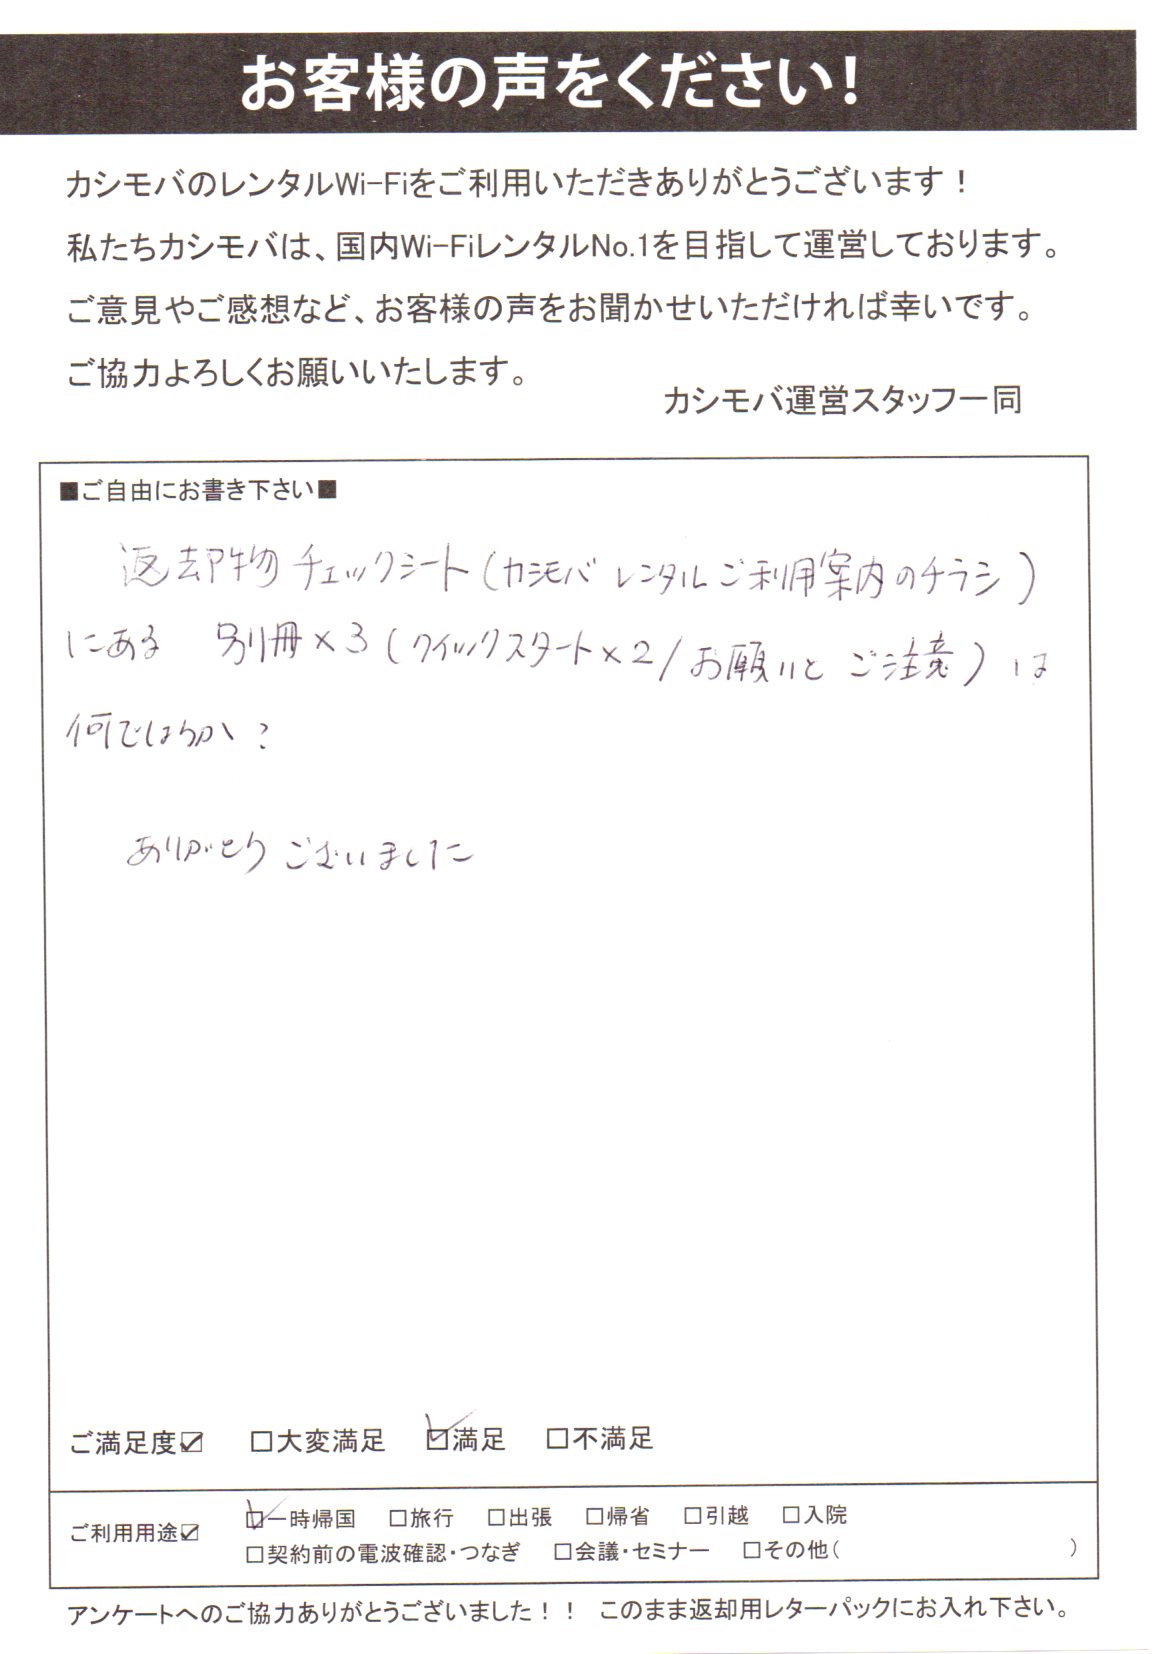 お客様の声をください!
カシモバのレンタルWi-Fiをご利用いただきありがとうございます!
私たちカシモバは、国内Wi-FiレンタルNo.1を目指して運営しております。
ご意見やご感想など、お客様の声をお聞かせいただければ幸いです。
ご協力よろしくお願いいたします。
カシモバ運営スタッフ一同
■ご自由にお書き下さい■
返却物チェックシート(カシモバ レンタルご利用案内のチラシ)
にある 別冊×3(クイックスタート×2/お願いと ご注意)は
何でしょうか?
ありがとうございました
ご満足度☑ □大変満足 ☑満足 □不満足
ご利用用途☑ ☑一時帰国 □旅行 □出張 □帰省 □引越 □入院
□契約前の電波確認・つなぎ □会議・セミナー □その他( )
アンケートへのご協力ありがとうございました!! このまま返却用レターパックにお入れ下さい。